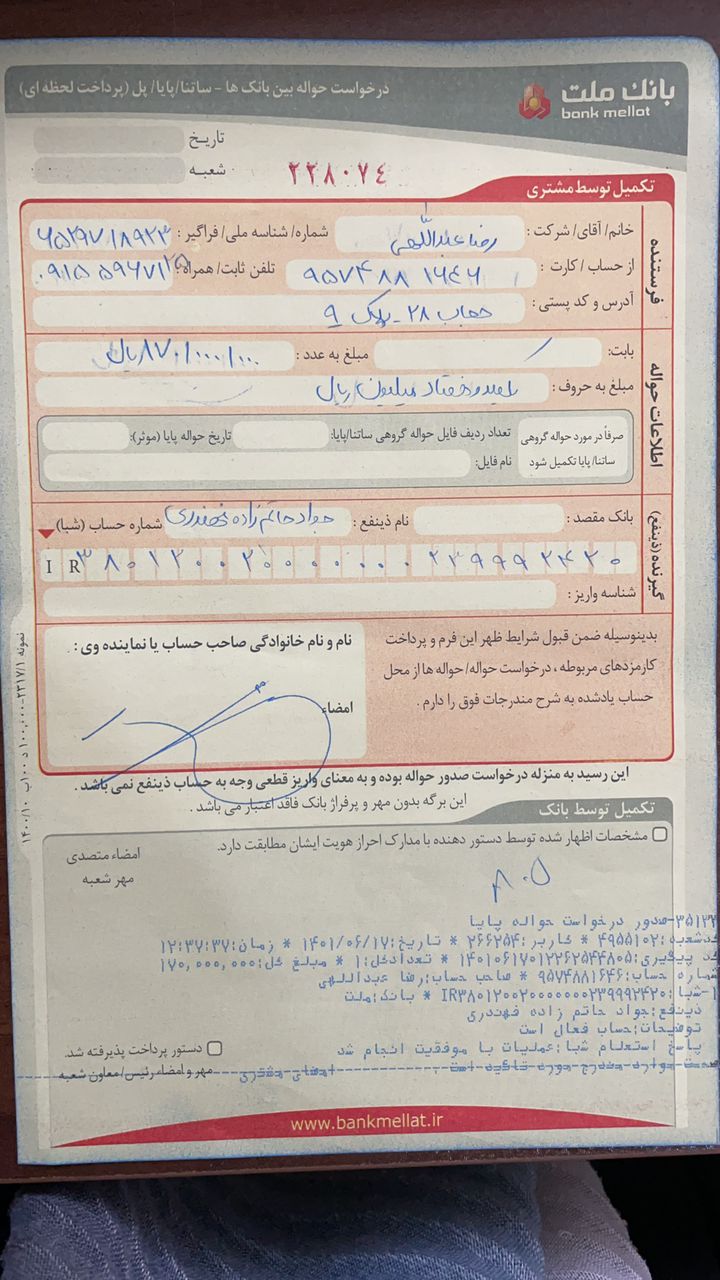 بانک ملت
bank mellat
درخواست حواله بین بانک ها - ساتنا/پایا/ پل (پرداخت لحظه ای)
تاریخ
شعبه
۲۲۸۰۷٤
تکمیل توسط مشتری
فرستنده
خانم/ آقای/ شرکت : رضا عبداللهی شماره/ شناسه ملی/ فراگیر :
از حساب/ کارت : ۹۵۷۴۸۸۱۶۴۶ تلفن ثابت/ همراه:
آدرس و کد پستی : حجاب ۲۸ - پلاک ۹
اطلاعات حواله
بابت: مبلغ به عدد : ۱۷۰/۰۰۰/۰۰۰ ریال
مبلغ به حروف : یکصد و هفتاد میلیون ریال
صرفاً در مورد حواله گروهی ساتنا/ پایا تکمیل شود
تعداد ردیف فایل حواله گروهی ساتنا/پایا: تاریخ حواله پایا (موثر):
نام فایل:
گیرنده (ذینفع)
بانک مقصد : نام ذینفع : جواد حاتم زاده فهندری شماره حساب (شبا)
IR ۳۸۰۱۲۰۰۲۰۰۰۰۰۰۰۲۳۹۹۹۲۴۲۰
شناسه واریز :
بدینوسیله ضمن قبول شرایط ظهر این فرم و پرداخت
کارمزدهای مربوطه ، درخواست حواله/ حواله ها از محل
حساب یادشده به شرح مندرجات فوق را دارم .
نام و نام خانوادگی صاحب حساب یا نماینده وی :
امضاء
این رسید به منزله درخواست صدور حواله بوده و به معنای واریز قطعی وجه به حساب ذینفع نمی باشد .
این برگه بدون مهر و پرفراژ بانک فاقد اعتبار می باشد .
تکمیل توسط بانک
مشخصات اظهار شده توسط دستور دهنده با مدارک احراز هویت ایشان مطابقت دارد.
امضاء متصدی
مهر شعبه
۳۵۱۳۲-صدور درخواست حواله پایا
کدشعبه:۴۹۵۵۱۰۲ * کاربر:۲۶۶۲۵۴ * تاریخ:۱۴۰۱/۰۶/۱۷ * زمان:۱۲:۳۷:۳۷
کد پیگیری:۱۴۰۱۰۶۱۷۰۱۲۲۶۲۵۴۴۸۰۵ * تعدادکل:۱ * مبلغ کل:۱۷۰,۰۰۰,۰۰۰
شماره حساب:۹۵۷۴۸۸۱۶۴۶ * صاحب حساب:رضا عبداللهی
۱-شبا:IR۳۸۰۱۲۰۰۲۰۰۰۰۰۰۰۲۳۹۹۹۲۴۲۰ * بانک:ملت
ذینفع:جواد حاتم زاده فهندری
توضیحات:حساب فعال است
پاسخ استعلام شبا:عملیات با موفقیت انجام شد
صحت موارد مندرج مورد تائید است امضای مشتری
دستور پرداخت پذیرفته شد.
مهر و امضاء رئیس/ معاون شعبه
www.bankmellat.ir